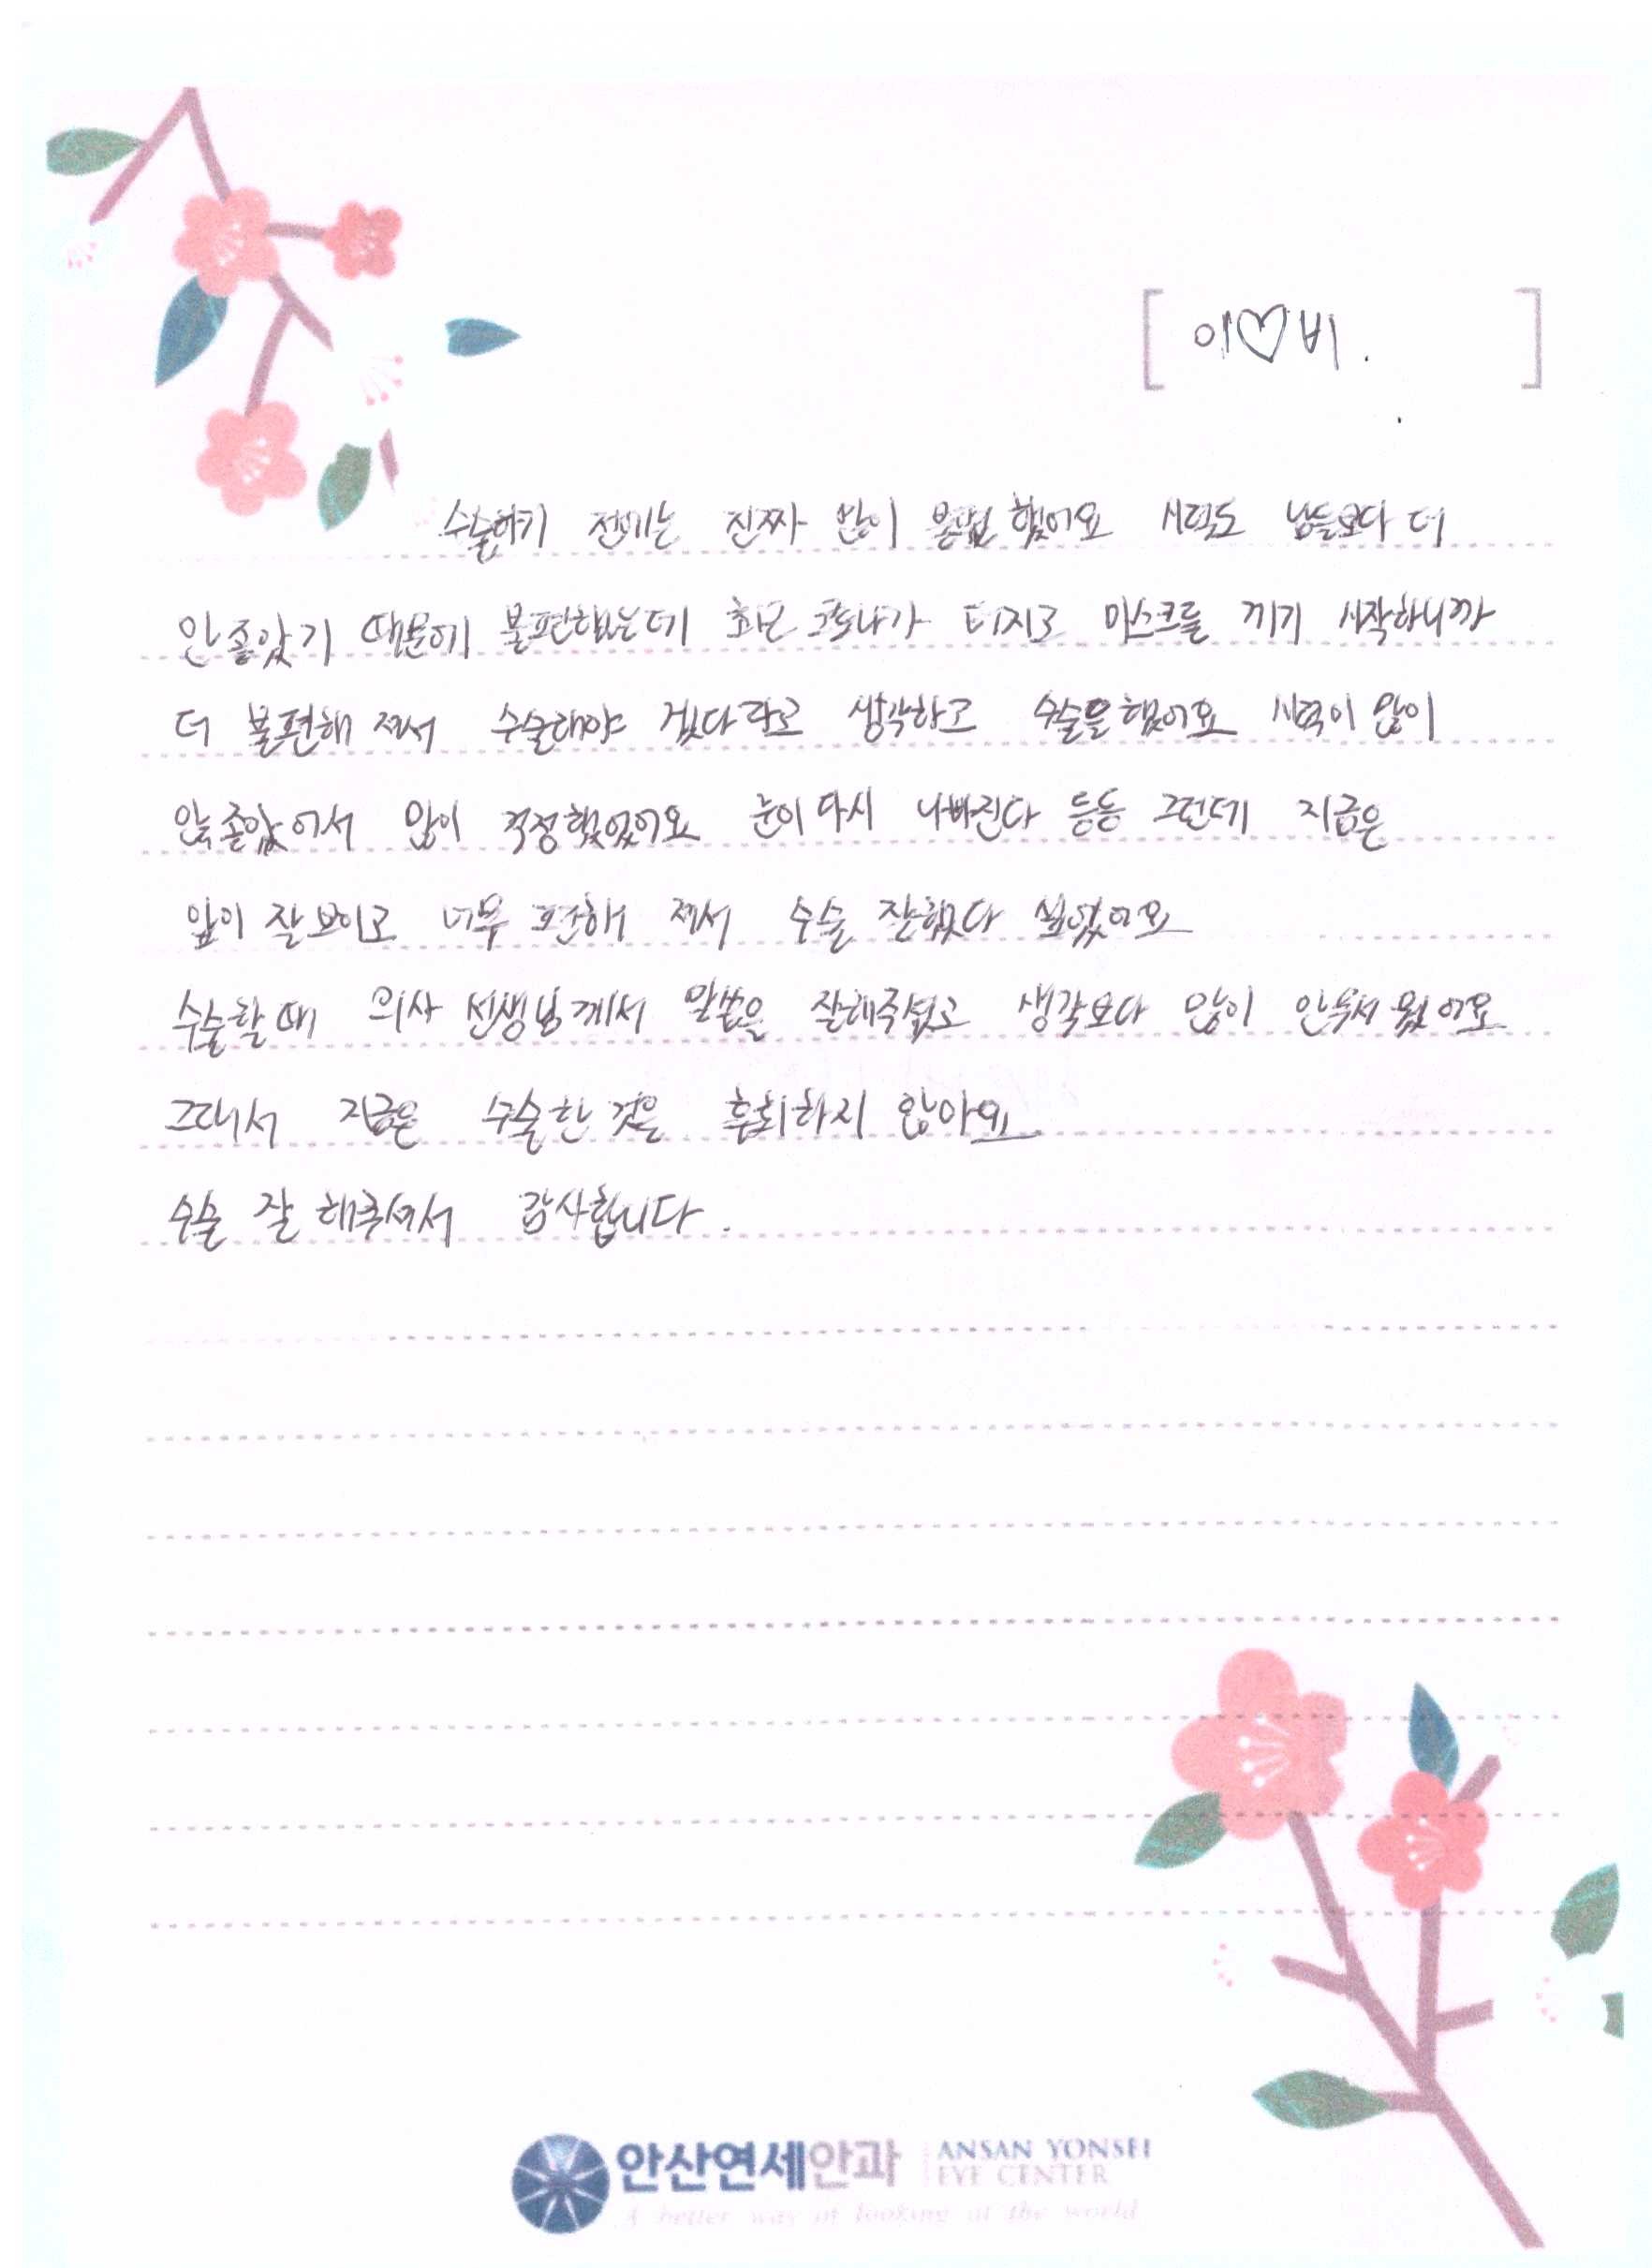 [ 이♡비. ]
수술하기 전에는 진짜 많이 불편 했어요 시력도 남들보다 더
안좋았기 때문에 불편했는데 최근 코로나가 터지고 마스크를 끼기 시작하니까
더 불편해 져서 수술해야 겠다라고 생각하고 수술을 했어요 시력이 많이
안좋았어서 많이 걱정했었어요 눈이 다시 나빠진다 등등 그런데 지금은
앞이 잘 보이고 너무 편해 져서 수술 잘했다 싶었어요
수술할 때 의사 선생님께서 말씀을 잘해주셨고 생각보다 많이 안무서 웠어요
그래서 지금은 수술한 것을 후회하지 않아요
수술 잘 해주셔서 감사합니다.
안산연세안과 ANSAN YONSEI
EYE CENTER
A better way of looking at the world